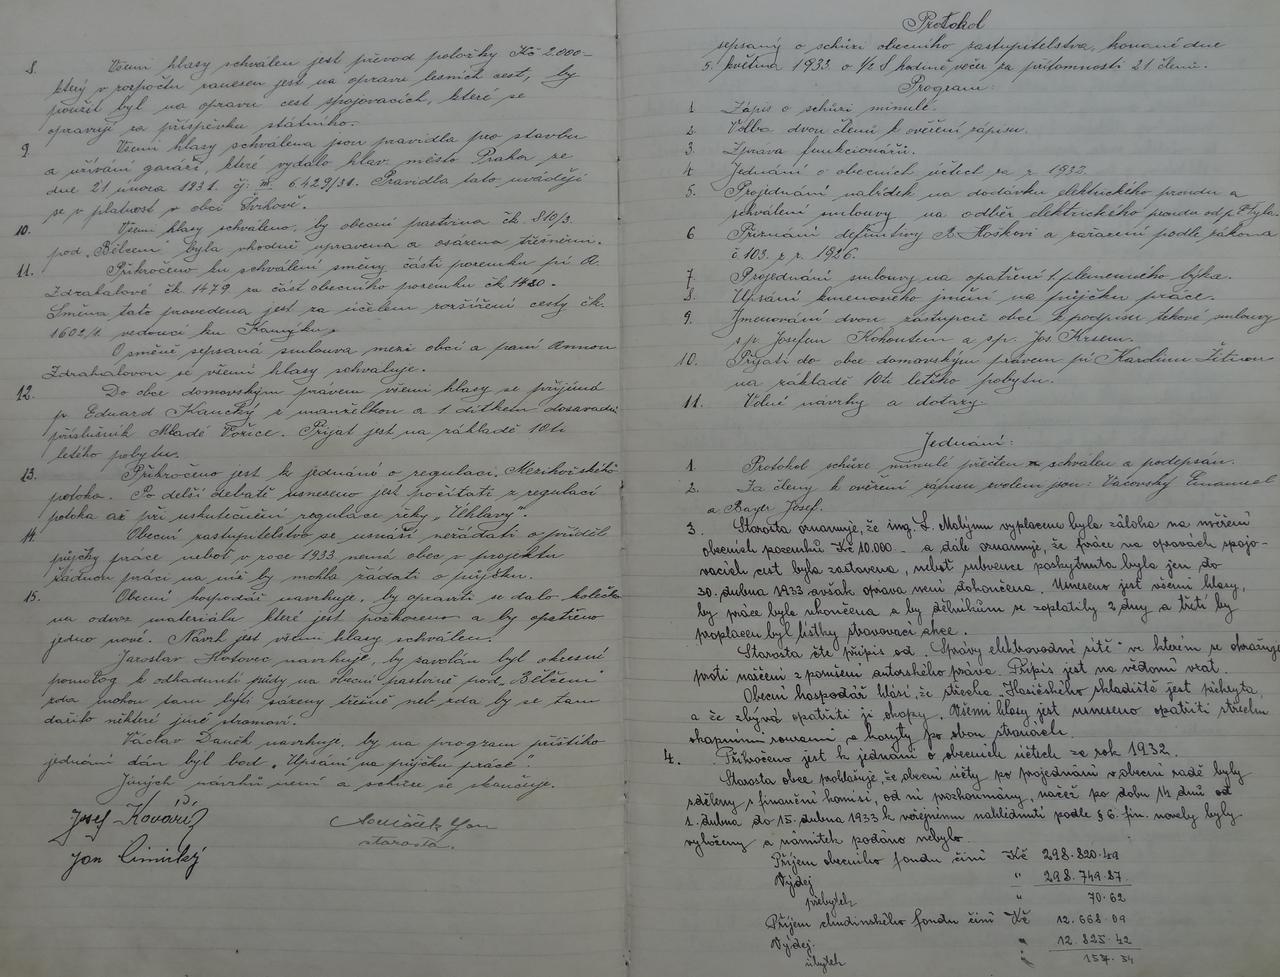 8. Všemi hlasy schválen jest převod položky Kč 2.000-
který v rozpočtu zanesen jest na opravu lesních cest, by
použit byl na opravu cest spojovacích, které se
opravují za příspěvku státního.
9. Všemi hlasy schválena jsou pravidla pro stavbu
a užívání garáží, které vydalo hlav. město Praha ze
dne 21 února 1931. čj: III. 6.429/31. Pravidla tato uvádějí
se v platnost v obci
10. Všemi hlasy schváleno, by obecní pastvina čk. 810/3.
pod "Bělčem" byla vhodně upravena a osázena třešněmi.
11. Přikročeno ku schválení směny části pozemku pí A.
Zdrahalové čk. 1479 za část obecního pozemku čk. 1480.
Směna tato provedena jest za účelem rozšíření cesty čk.
1602/1 vedoucí ku Kamýku.
O směně sepsaná smlouva mezi obcí a paní Annou
Zdrahalovou se všemi hlasy schvaluje.
12. Do obce domovským právem všemi hlasy se přijímá
p. Eduard Kaucký s manželkou a 1 dítkem dosavadní
příslušník Mladé Vožice. Přijat jest na základě 10ti
letého pobytu.
13. Přikročeno jest k jednání o regulaci
potoka. Po delší debatě usneseno jest počítati z regulací
potoka až při uskutečnění regulace řeky "Úhlavy".
14. Obecní zastupitelstvo se usnáší nežádati o příděl
půjčky práce neboť v roce 1933 nemá obec v projektu
žádnou práci na niž by mohla žádati o půjčku.
15. Obecní hospodář navrhuje, by opraviti se dalo kolečko
na odvoz materiálu, které jest pozkoženo a by opatřeno
jedno nové. Návrh jest všemi hlasy schválen.
Jaroslav Hotovec navrhuje, by zavolán byl okresní
pomolog k odhadnutí půdy na obecní pastvině pod "Bělčem"
zda mohou tam býti sázeny třešně neb zda by se tam
dařilo některé jiné stromoví.
Václav Daněk navrhuje, by na program příštího
jednání dán byl bod "Upsání na půjčku práce".
Jiných návrhů není a schůze se skončuje.
Josef Kovářík
Jan
starosta.
Jan Cimický
Protokol
sepsaný o schůzi obecního zastupitelstva, konané dne
5. května 1933. o 1/2 8 hodině večer za přítomnosti 21. členů.
Program:
1. Zápis o schůzi minulé.
2. Volba dvou členů k ověření zápisu.
3. Zpráva funkcionářů.
4. Jednání o obecních účtech za r. 1932.
5. Projednání nabídek na dodávku elektrického proudu a
schválení smlouvy na odběr elektrického proudu od p.
6. Přiznání definitivy A. Hoškovi a zařazení podle zákona
č. 103. z r. 1926.
7. Projednání smlouvy na opatření 1. plemenného býka.
8. Upsání kmenového jmění na půjčku práce.
9. Jmenování dvou zástupců obce k podpisu trhové smlouvy
s p. Josefem Kohoutem a s p. Jos. Krsem.
10. Přijatí do obce domovským právem pí Karolínu
na základě 10ti letého pobytu.
11. Volné návrhy a dotazy.
Jednání:
1. Protokol schůze minulé přečten schválen a podepsán.
2. Za členy k ověření zápisu zvolení jsou: Vácovský Emanuel
a Bayer Josef.
3. Starosta oznamuje, že ing. L. Malýmu vyplacena byla záloha na měření
obecních pozemků Kč 10.000.- a dále oznamuje, že práce na opravách spojo-
vacích cest byla zastavena, neboť subvence poskytnuta byla jen do
30. dubna 1933 avšak oprava není dokončena. Usneseno jest všemi hlasy,
by práce byla ukončena a by dělníkům se zaplatily 2 dny a třetí by
proplacen byl lístky stravovací akce.
Starosta čte přípis od "Správy elektrovodné sítě" ve kterém se ohražuje
proti nařčení z porušení autorského práva. Přípis jest na vědomí vzat.
Obecní hospodář hlásí, že střecha "Hasičského skladiště" jest přikryta,
a že zbývá opatřiti ji okapy. Všemi hlasy jest usneseno opatřiti střechu
okapními rourami a koryty po obou stranách.
4. Přikročeno jest k jednání o obecních účtech za rok 1932.
Starosta obce prohlašuje, že obecní účty po projednání v obecní radě byly
sděleny s finanční komisí, od ní prozkoumány, načež po dobu 14 dnů od
1. dubna do 15. dubna 1933 k veřejnému nahlédnutí podle § 6. fin. novely byly
vyloženy a námitek podáno nebylo.
Příjem obecního fondu činí Kč 298.820.49
Výdej " 298.749.87.
přebytek " 70.62
Příjem chudinského fondu činí Kč 12.668.09
Výdej. " 12.825.42
úbytek " 157.34